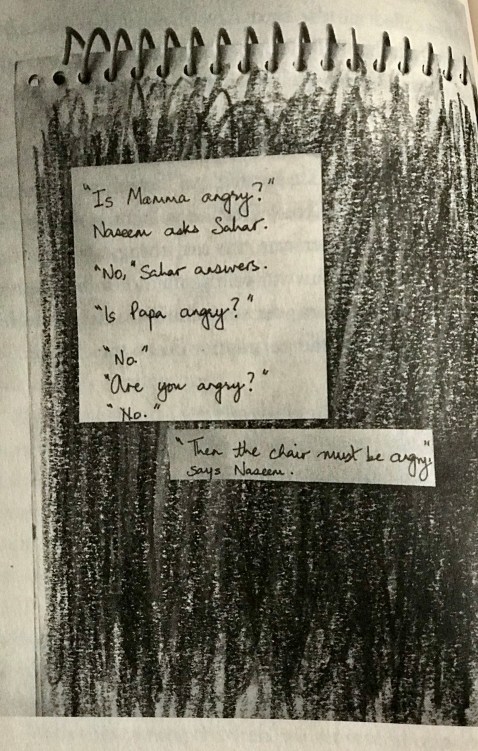 "Is Mamma angry?"
Naseem asks Sahar.
"No," Sahar answers.
"Is Papa angry?"
"No."
"Are you angry?"
"No."
"Then the chair must be angry"
says Naseem.